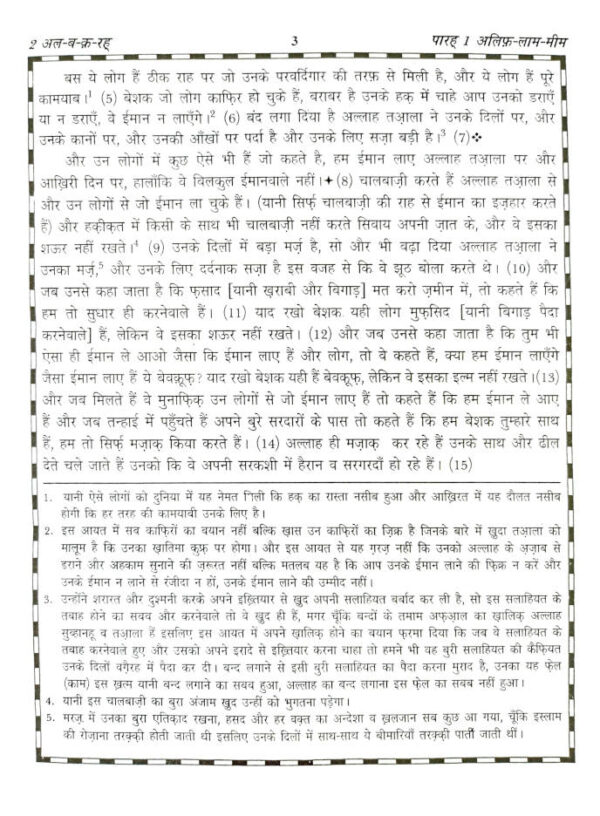 2 अल-ब-क़-रह्
3
पारह् 1 अलिफ़-लाम-मीम
बस ये लोग हैं ठीक राह पर जो उनके परवर्दिगार की तरफ़ से मिली है, और ये लोग हैं पूरे
कामयाब।¹ (5) बेशक जो लोग काफ़िर हो चुके हैं, बराबर है उनके हक़ में चाहे आप उनको डराएँ
या न डराएँ, वे ईमान न लाएँगे।² (6) बंद लगा दिया है अल्लाह तआ़ला ने उनके दिलों पर, और
उनके कानों पर, और उनकी आँखों पर पर्दा है और उनके लिए सज़ा बड़ी है।³ (7)❖
और उन लोगों में कुछ ऐसे भी हैं जो कहते है, हम ईमान लाए अल्लाह तआ़ला पर और
आख़िरी दिन पर, हालाँकि वे बिलकुल ईमानवाले नहीं।✦(8) चालबाज़ी करते हैं अल्लाह तआ़ला से
और उन लोगों से जो ईमान ला चुके हैं। (यानी सिर्फ़ चालबाज़ी की राह से ईमान का इज़हार करते
हैं) और हक़ीक़त में किसी के साथ भी चालबाज़ी नहीं करते सिवाय अपनी ज़ात के, और वे इसका
शऊर नहीं रखते।⁴ (9) उनके दिलों में बड़ा मर्ज़ है, सो और भी बढ़ा दिया अल्लाह तआ़ला ने
उनका मर्ज़,⁵ और उनके लिए दर्दनाक सज़ा है इस वजह से कि वे झूठ बोला करते थे। (10) और
जब उनसे कहा जाता है कि फ़साद [यानी ख़राबी और बिगाड़] मत करो ज़मीन में, तो कहते हैं कि
हम तो सुधार ही करनेवाले हैं। (11) याद रखो बेशक यही लोग मुफ़्सिद [यानी बिगाड़ पैदा
करनेवाले] हैं, लेकिन वे इसका शऊर नहीं रखते। (12) और जब उनसे कहा जाता है कि तुम भी
ऐसा ही ईमान ले आओ जैसा कि ईमान लाए हैं और लोग, तो वे कहते हैं, क्या हम ईमान लाएँगे
जैसा ईमान लाए हैं ये बेवक़ूफ़? याद रखो बेशक यही हैं बेवक़ूफ़, लेकिन वे इसका इल्म नहीं रखते।(13)
और जब मिलते हैं वे मुनाफ़िक़ उन लोगों से जो ईमान लाए हैं तो कहते हैं कि हम ईमान ले आए
हैं और जब तन्हाई में पहुँचते हैं अपने बुरे सरदारों के पास तो कहते हैं कि हम बेशक तुम्हारे साथ
हैं, हम तो सिर्फ़ मज़ाक़ किया करते हैं। (14) अल्लाह ही मज़ाक़ कर रहे हैं उनके साथ और ढील
देते चले जाते हैं उनको कि वे अपनी सरकशी में हैरान व सरगरदाँ हो रहे हैं। (15)
1. यानी ऐसे लोगों को दुनिया में यह नेमत मिली कि हक़ का रास्ता नसीब हुआ और आख़िरत में यह दौलत नसीब
होगी कि हर तरह की कामयाबी उनके लिए है।
2. इस आयत में सब काफ़िरों का बयान नहीं बल्कि ख़ास उन काफ़िरों का ज़िक्र है जिनके बारे में ख़ुदा तआ़ला को
मालूम है कि उनका ख़ातिमा कुफ़्र पर होगा। और इस आयत से यह ग़रज़ नहीं कि उनको अल्लाह के अज़ाब से
डराने और अहकाम सुनाने की ज़रूरत नहीं बल्कि मतलब यह है कि आप उनके ईमान लाने की फ़िक्र न करें और
उनके ईमान न लाने से रंजीदा न हों, उनके ईमान लाने की उम्मीद नहीं।
3. उन्होंने शरारत और दुश्मनी करके अपने इख़्तियार से ख़ुद अपनी सलाहियत बर्बाद कर ली है, सो इस सलाहियत के
तबाह होने का सबब और करनेवाले तो ये ख़ुद ही हैं, मगर चूँकि बन्दों के तमाम अफ़आ़ल का ख़ालिक़ अल्लाह
सुब्हानहू व तआ़ला हैं इसलिए इस आयत में अपने ख़ालिक़ होने का बयान फ़रमा दिया कि जब वे सलाहियत के
तबाह करनेवाले हुए और उसको अपने इरादे से इख़्तियार करना चाहा तो हमने भी वह बुरी सलाहियत की कैफ़ियत
उनके दिलों वग़ैरह में पैदा कर दी। बन्द लगाने से इसी बुरी सलाहियत का पैदा करना मुराद है, उनका यह फ़ेल
(काम) इस ख़त्म यानी बन्द लगाने का सबब हुआ, अल्लाह का बन्द लगाना इस फ़ेल का सबब नहीं हुआ।
4. यानी इस चालबाज़ी का बुरा अंजाम ख़ुद उन्हीं को भुगतना पड़ेगा।
5. मरज़ में उनका बुरा एतिक़ाद रखना, हसद और हर वक़्त का अन्देशा व ख़लजान सब कुछ आ गया, चूँकि इस्लाम
की रोज़ाना तरक़्क़ी होती जाती थी इसलिए उनके दिलों में साथ-साथ ये बीमारियाँ तरक़्क़ी पाती जाती थीं।